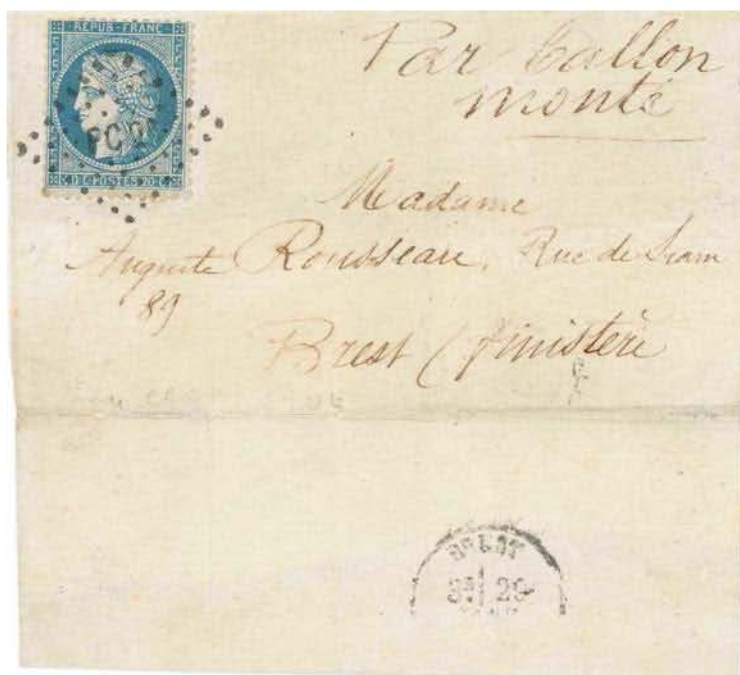 REPUB·FRANC·
20·C·POSTES·20·C·
Par ballon
monté
Madame
Auguste Rousseau, Rue de Siam
89
Brest (finistère
BREST
29